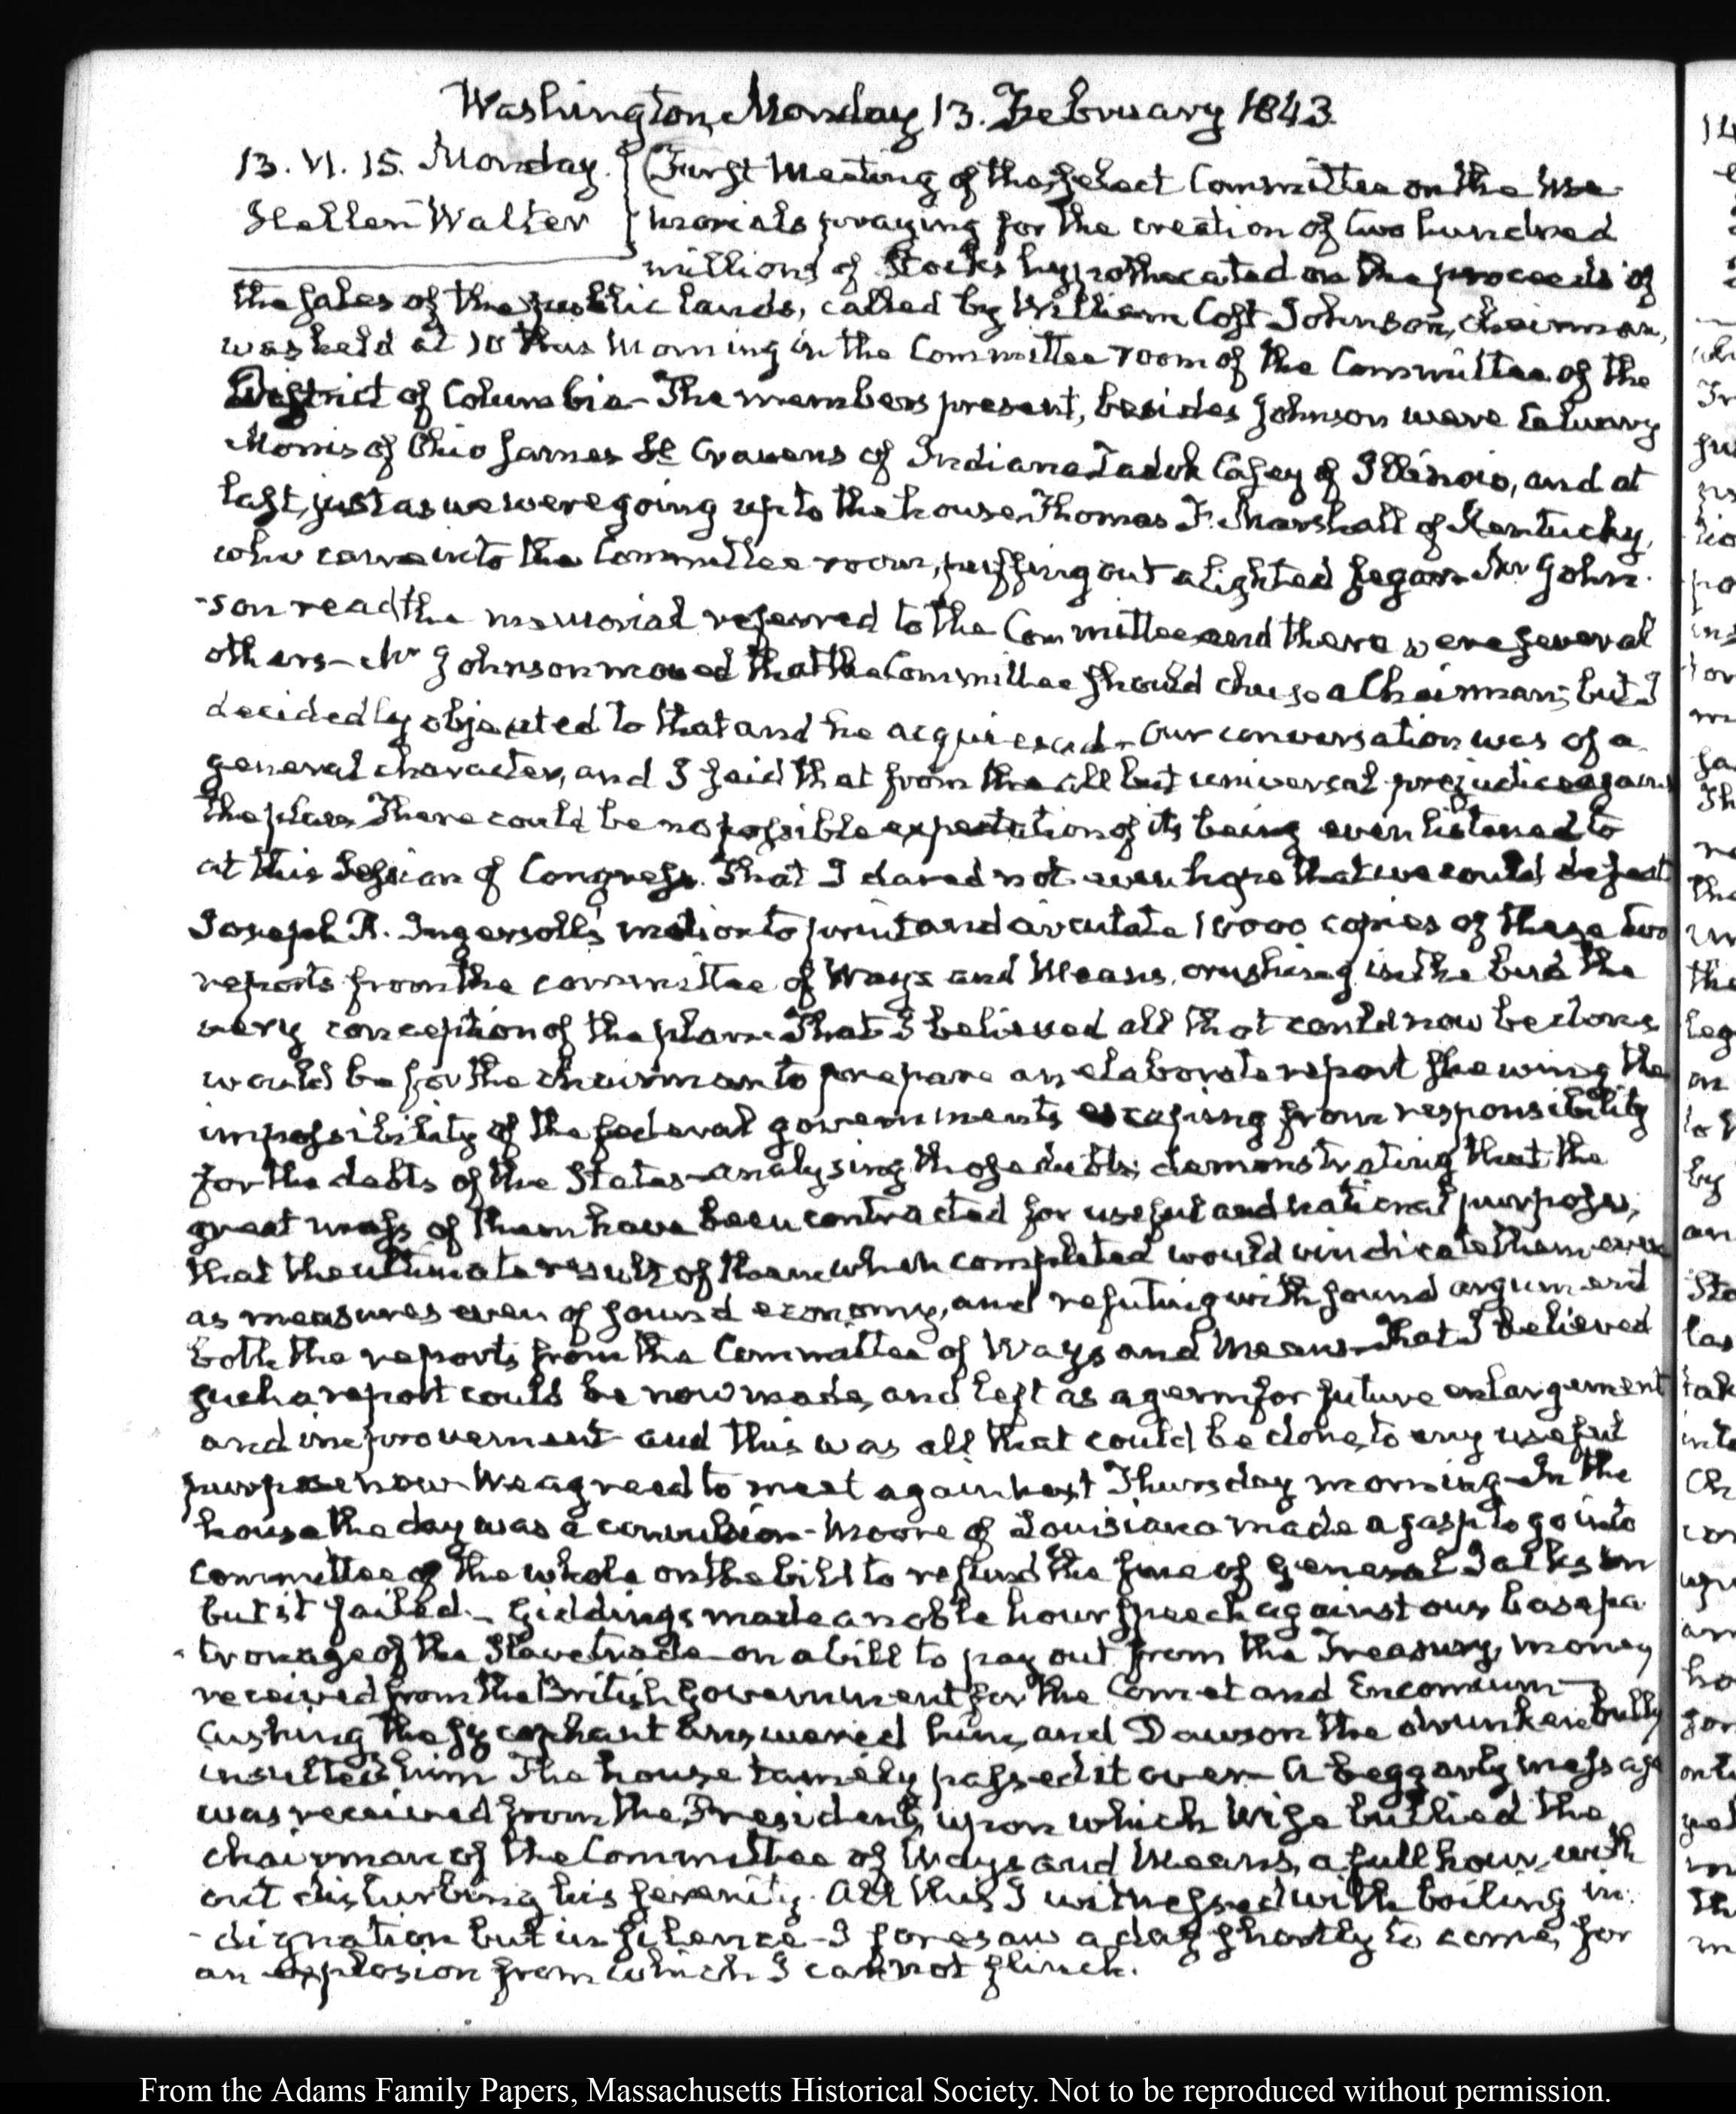 Washington, Monday 13. February 1843.
13. VI. 15. Monday.
Hellen Walter
First Meeting of the Select Committee on the Me
morials praying for the creation of two hundred
millions of Stocks hypothecated on the proceeds of
the sales of the public lands, called by William Cost Johnson, chairman,
was held at 10 this Morning in the Committee room of the Committee of the
District of Columbia— The members present, besides Johnson were Calvary
Morris of Ohio James H. Cravens of Indiana Zadok Casey of Illinois, and at
last, just as we were going up to the house, Thomas F. Marshall of Kentucky,
who came into the Committee room, puffing out a lighted segar— Mr John-
-son read the memorial referred to the Committee and there were several
others— Mr Johnson moved that the Committee should chuse a Chairman; but I
decidedly objected to that and he acquiesced— Our conversation was of a
general character, and I said that from the all but universal prejudice against
the plan There could be no possible expectation of its being even listened to
at this Session of Congress. That I dared not even hope that we could defeat
Joseph R. Ingersoll's motion to print and circulate 10000 copies of these two
reports from the committee of Ways and Means, crushing in the bud the
very conception of the plan— That I believed all that could now be done
would be for the chairman to prepare an elaborate report shewing the
impossibility of the federal government's escaping from responsibility
for the debts of the States— analysing those debts; demonstrating that the
great mass of them have been contracted for useful and national purposes;
that the ultimate results of them when completed would vindicate them even
as measures even of sound economy, and refuting with sound argument
both the reports from the Committee of Ways and Means— That I believed
such a report could be now made, and left as a germ for future enlargement
and improvement and this was all that could be done, to any useful
purpose now— We agreed to meet again next Thursday morning— In the
house the day was a convulsion— Moore of Louisiana made a gasp to go into
committee of the whole on the bill to refund the fine of General Jackson
but it failed.— Giddings made a noble hour speech against our base pa
-tronage of the Slave trade— on a bill to pay out from the Treasury, money
received from the British Government for the Comet and Encomium—
Cushing the sycophant answered him, and Dawson the drunken bully
insulted him The house tamely passed it over— A beggarly message
was received from the President, upon which Wise bullied the
chairman of the Committee of Ways and Means, a full hour, with
out disturbing his serenity. All this I witnessed with boiling in-
-dignation but in silence— I foresaw a day shortly to come, for
an explosion from which I cannot flinch.
From the Adams Family Papers, Massachusetts Historical Society. Not to be reproduced without permission.